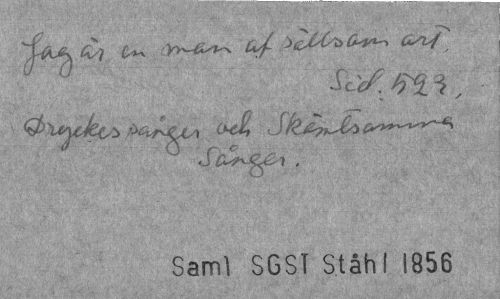 Jag är en man af sällsam art.
Sid. 523.
Dryckessånger och Skämtsamma
Sånger.
Saml SGST Ståhl 1856